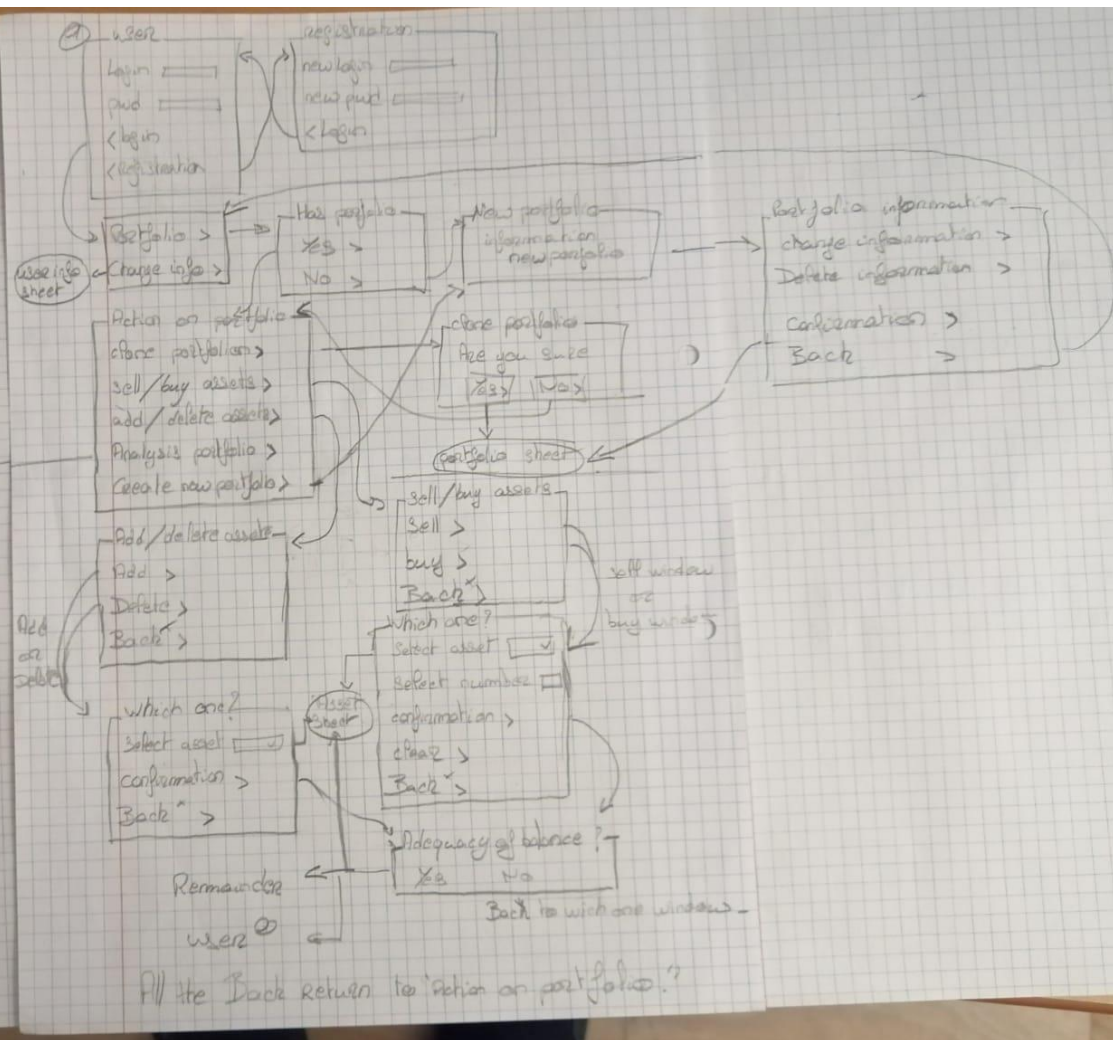 user
Login
pwd
<login
<registration
registration
new login
new pwd
<Login
Portfolio >
Change info >
user info
sheet
Has portfolio
Yes >
No >
New portfolio
information
new portfolio
Portfolio information
change information >
Delete information >
Confirmation >
Back >
Action on portfolio
clone portfolio >
sell/buy assets >
add/delete assets >
Analysis portfolio >
Create new portfolio >
clone portfolio
Are you sure
Yes> No>
portfolio sheet
Sell/buy assets
Sell >
buy >
Back >
sell window
or
buy window
Add/delete assets
Add >
Delete >
Back >
Add
or
Which one?
Select asset
Select number
confirmation >
clear >
Back >
Asset
sheet
which one?
Select asset
confirmation >
Back >
Adequacy of balance?
Yes No
Back to wich one window
Remainder
user
All the Back Return to "Action on portfolio"